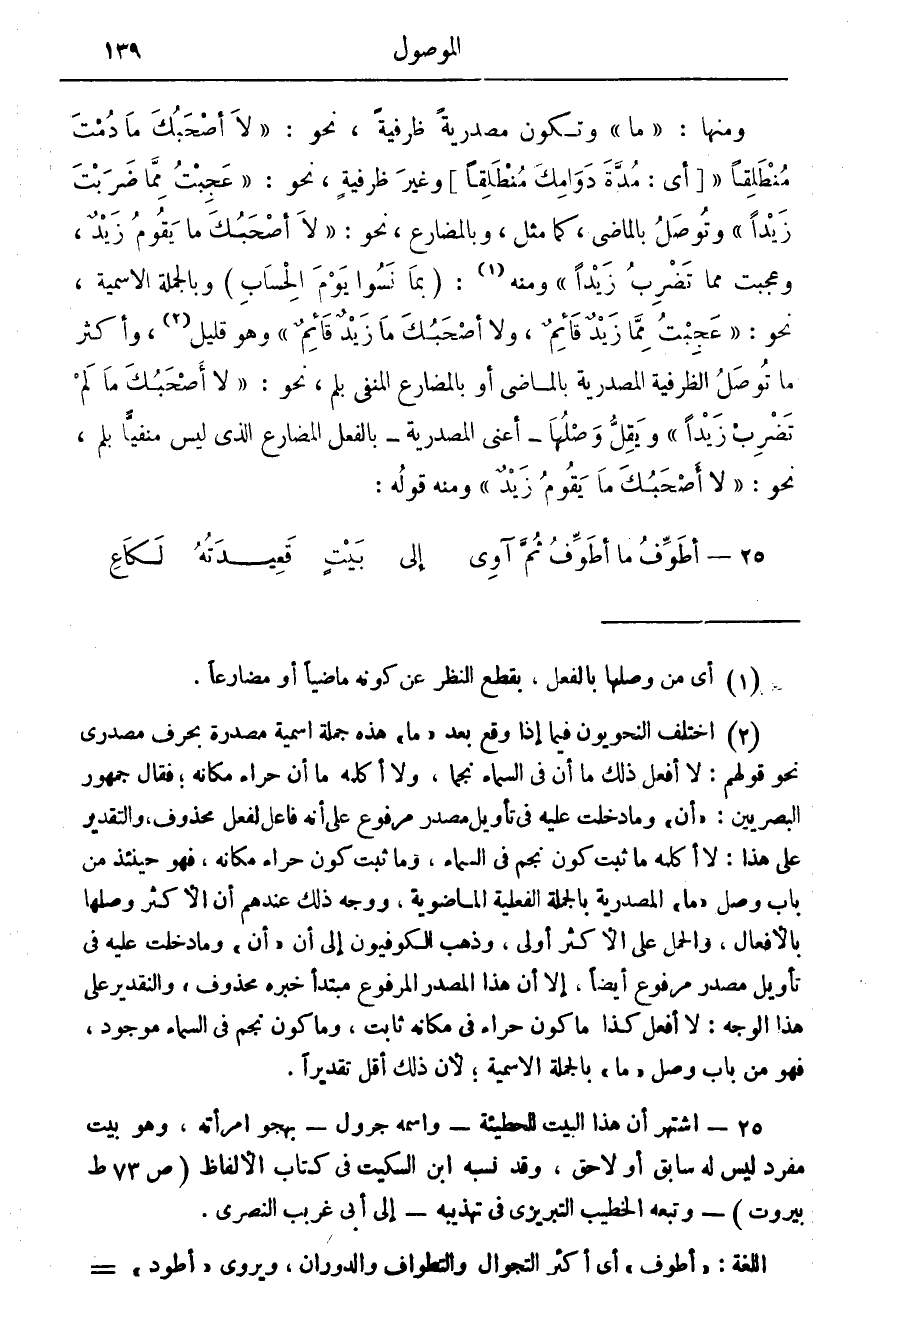 الموصول ١٣٩
ومنها : « ما » وتكون مصدريةً ظرفيةً ، نحو : « لاَ أصْحَبُكَ مَا دُمْتَ
مُنْطَلِقاً » [ أى : مُدَّةَ دَوَامِكَ مُنْطَلِقاً ] وغيرَ ظرفيةٍ ، نحو : « عَجِبْتُ مِمَّا ضَرَبْتَ
زَيْداً » وتُوصَلُ بالماضى ، كما مثل ، وبالمضارع ، نحو : « لاَ أصْحَبُكَ ما يَقُومُ زَيْدٌ ،
وعجبت مما تَضْرِبُ زَيْداً » ومنه (١) : ( بِمَا نَسُوا يَوْمَ الْحِسَابِ ) وبالجملة الاسمية ،
نحو : « عَجِبْتُ مِمَّا زَيْدٌ قَائمٌ ، ولا أصْحَبُكَ مَا زَيْدٌ قَائمٌ » وهو قليل (٢) ، وأكثر
ما تُوصَلُ الظرفية المصدرية بالماضى أو بالمضارع المنفى بلم ، نحو : « لا أَصْحَبُكَ مَا لَمْ
تَضْرِبْ زَيْداً » ويَقِلُّ وَصْلُهَا ــ أعنى المصدرية ــ بالفعل المضارع الذى ليس منفيًّا بلم ،
نحو : « لا أَصْحَبُكَ مَا يَقُومُ زَيْدٌ » ومنه قولُه :
٢٥ ــ أطَوِّفُ ما أطَوِّفُ ثُمَّ آوِى إلى بَيْتٍ قَعِيدَتُهُ لَكَاعِ
(١) أى من وصلها بالفعل ، بقطع النظر عن كونه ماضياً أو مضارعاً .
(٢) اختلف النحويون فيما إذا وقع بعد « ما » هذه جملة اسمية مصدرة بحرف مصدرى
نحو قولهم : لا أفعل ذلك ما أن فى السماء نجما ، ولا أكلمه ما أن حراء مكانه ؛ فقال جمهور
البصريين : « أن » ومادخلت عليه فى تأويل مصدر مرفوع على أنه فاعل لفعل محذوف ، والتقدير
على هذا : لا أكلمه ما ثبت كون نجم فى السماء ، وما ثبت كون حراء مكانه ، فهو حينئذ من
باب وصل « ما » المصدرية بالجملة الفعلية الماضوية ، ووجه ذلك عندهم أن الأكثر وصلها
بالأفعال ، والحمل على الأكثر أولى ، وذهب الكوفيون إلى أن « أن » ومادخلت عليه فى
تأويل مصدر مرفوع أيضاً ، إلا أن هذا المصدر المرفوع مبتدأ خبره محذوف ، والتقدير على
هذا الوجه : لا أفعل كذا ما كون حراء فى مكانه ثابت ، وما كون نجم فى السماء موجود ،
فهو من باب وصل « ما » بالجملة الاسمية ؛ لأن ذلك أقل تقديراً .
٢٥ ــ اشتهر أن هذا البيت للحطيئة ــ واسمه جرول ــ يهجو امرأته ، وهو بيت
مفرد ليس له سابق أو لاحق ، وقد نسبه ابن السكيت فى كتاب الألفاظ ( ص ٧٣ ط
بيروت ) ــ وتبعه الخطيب التبريزى فى تهذيبه ــ إلى أبى غريب النصرى .
اللغة : « أطوف » أى أكثر التجوال والتطواف والدوران ، ويروى « أطود » =